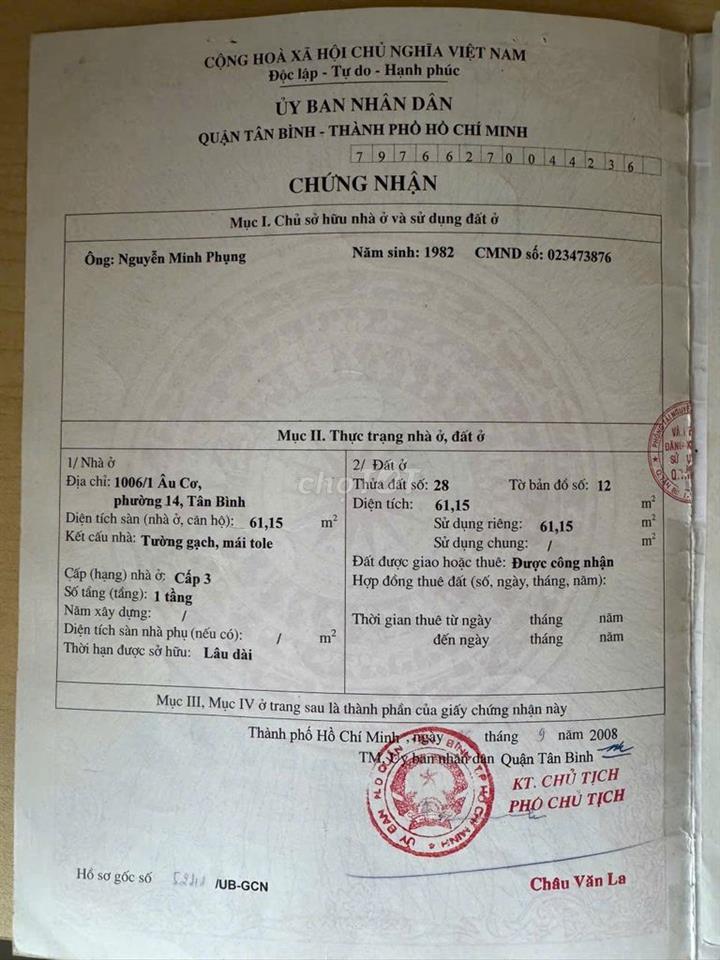 CỘNG HOÀ XÃ HỘI CHỦ NGHĨA VIỆT NAM
Độc lập - Tự do - Hạnh phúc
ỦY BAN NHÂN DÂN
QUẬN TÂN BÌNH - THÀNH PHỐ HỒ CHÍ MINH
79766270044236
CHỨNG NHẬN
Mục I. Chủ sở hữu nhà ở và sử dụng đất ở
Ông: Nguyễn Minh Phụng Năm sinh: 1982 CMND số: 023473876
Mục II. Thực trạng nhà ở, đất ở
1/ Nhà ở
Địa chỉ: 1006/1 Âu Cơ,
phường 14, Tân Bình
Diện tích sàn (nhà ở, căn hộ): 61,15 m²
Kết cấu nhà: Tường gạch, mái tole
Cấp (hạng) nhà ở: Cấp 3
Số tầng (tầng): 1 tầng
Năm xây dựng: /
Diện tích sàn nhà phụ (nếu có): / m²
Thời hạn được sở hữu: Lâu dài
2/ Đất ở
Thửa đất số: 28 Tờ bản đồ số: 12
Diện tích: 61,15 m²
Sử dụng riêng: 61,15 m²
Sử dụng chung: / m²
Đất được giao hoặc thuê: Được công nhận
Hợp đồng thuê đất (số, ngày, tháng, năm):
Thời gian thuê từ ngày tháng năm
đến ngày tháng năm
Mục III, Mục IV ở trang sau là thành phần của giấy chứng nhận này
Thành phố Hồ Chí Minh, ngày tháng 9 năm 2008
TM. Ủy ban nhân dân Quận Tân Bình
KT. CHỦ TỊCH
PHÓ CHỦ TỊCH
Hồ sơ gốc số /UB-GCN
Châu Văn La